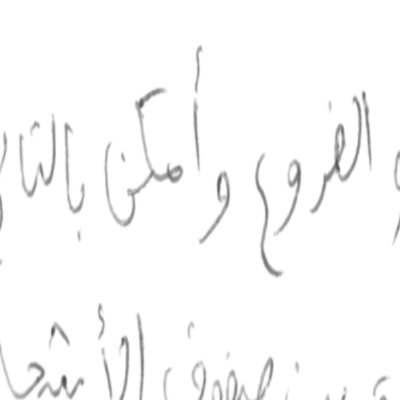 الفروع وأمكن بالتا
صفوف الأشجا